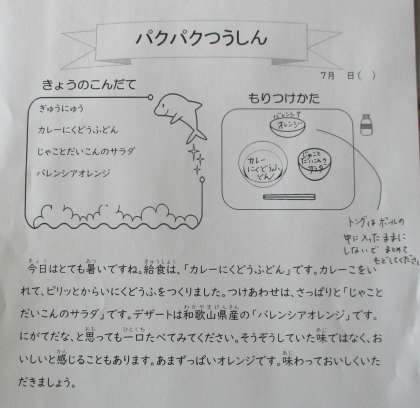 パクパクつうしん
7月　日（　）
きょうのこんだて
ぎゅうにゅう
カレーにくどうふどん
じゃことだいこんのサラダ
バレンシアオレンジ
もりつけかた
バレンシア
オレンジ
カレー
にくどうふ
どん
じゃこと
だいこんの
サラダ
トングはボールの
中に入ったままに
しないで まとめて
もどしてください
今日はとても暑いですね。給食は、「カレーにくどうふどん」です。カレーこをい
れて、ピリッとからいにくどうふをつくりました。つけあわせは、さっぱりと「じゃこと
だいこんのサラダ」です。デザートは和歌山県産の「バレンシアオレンジ」です。
にがてだな、と思っても一口たべてみてください。そうぞうしていた味ではなく、お
いしいと感じることもあります。あまずっぱいオレンジです。味わっておいしくいた
だきましょう。